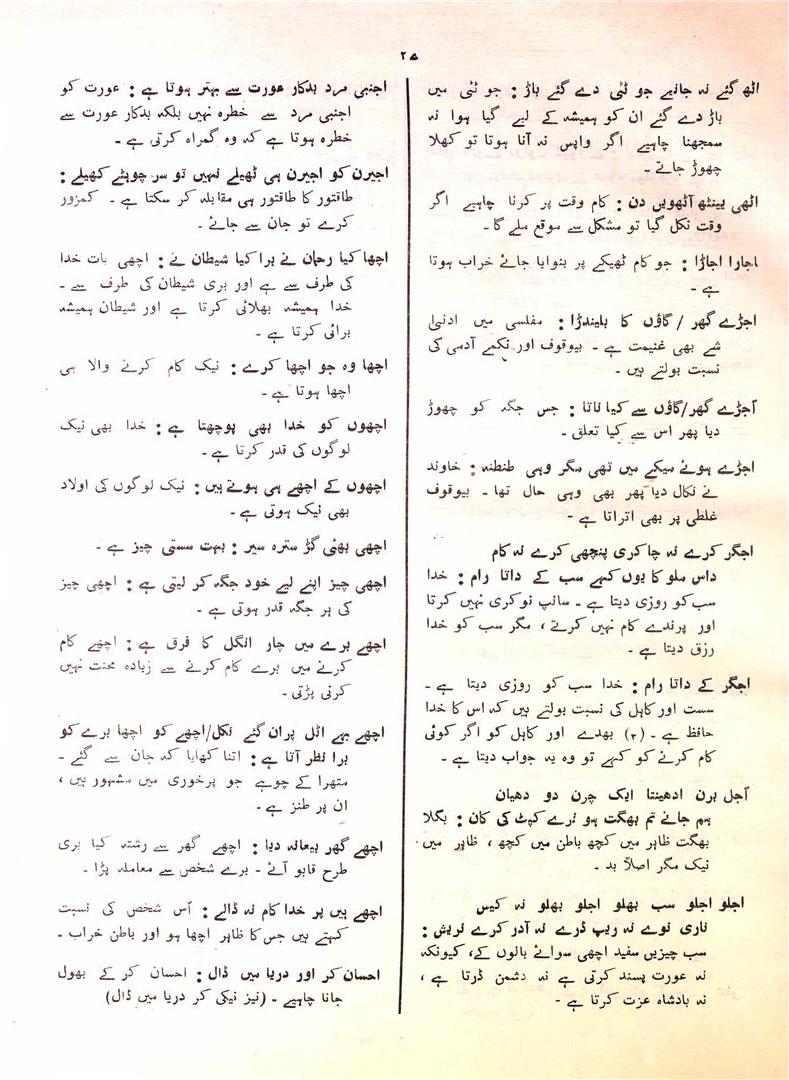 ۲۷
اٹھ گئے نہ جانیے جو ٹٹی دے گئے باڑ : جو ٹٹی میں
باڑ دے گئے ان کو ہمیشہ کے لیے گیا ہوا نہ
سمجھنا چاہیے اگر واپس نہ آنا ہوتا تو کھلا
چھوڑ جاتے ۔
اٹھی پینٹھ آٹھویں دن : کام وقت پر کرنا چاہیے اگر
وقت نکل گیا تو مشکل سے موقع ملے گا ۔
اجارا اجاڑا : جو کام ٹھیکے پر بنوایا جائے خراب ہوتا
ہے ۔
اجڑے گھر / گاؤں کا بلینڈڑا : مفلسی میں ادنیٰ
شے بھی غنیمت ہے ۔ بیوقوف اور نکمے آدمی کی
نسبت بولتے ہیں ۔
اجڑے گھر/گاؤں سے کیا ناتا : جس جگہ کو چھوڑ
دیا پھر اس سے کیا تعلق ۔
اجڑے ہوئے میکے میں تھی مگر وہی طنطنہ : خاوند
نے نکال دیا پھر بھی وہی حال تھا ۔ بیوقوف
غلطی پر بھی اتراتا ہے ۔
اجگر کرے نہ چاکری پنچھی کرے نہ کام
داس ملوکا یوں کہے سب کے داتا رام : خدا
سب کو روزی دیتا ہے ۔ سانپ نوکری نہیں کرتا
اور پرندے کام نہیں کرتے ، مگر سب کو خدا
رزق دیتا ہے ۔
اجگر کے داتا رام : خدا سب کو روزی دیتا ہے ۔
سست اور کاہل کی نسبت بولتے ہیں کہ اس کا خدا
حافظ ہے ۔ (۲) بھدے اور کاہل کو اگر کوئی
کام کرنے کو کہے تو وہ یہ جواب دیتا ہے ۔
اجل برن ادھینتا ایک چرن دو دھیان
ہم جانے تم بھگت ہو نرے کپٹ کی کان : بگلا
بھگت ظاہر میں کچھ باطن میں کچھ ، ظاہر میں
نیک مگر اصلاً بد ۔
اجلو اجلو سب بھلو اجلو بھلو نہ کیس
ناری نوے نہ رپپ ڈرے نہ آدر کرے نریش :
سب چیزیں سفید اچھی سوائے بالوں کے، کیونکہ
نہ عورت پسند کرتی ہے نہ دشمن ڈرتا ہے ،
نہ بادشاہ عزت کرتا ہے ۔
اجنبی مرد بدکار عورت سے بہتر ہوتا ہے : عورت کو
اجنبی مرد سے خطرہ نہیں بلکہ بدکار عورت سے
خطرہ ہوتا ہے کہ وہ گمراہ کرتی ہے ۔
اجیرن کو اجیرن ہی ٹھیلے نہیں تو سر چوپٹے کھیلے :
طاقتور کا طاقتور ہی مقابلہ کر سکتا ہے ۔ کمزور
کرے تو جان سے جائے ۔
اچھا کیا رحمان نے برا کیا شیطان نے : اچھی بات خدا
کی طرف سے ہے اور بری شیطان کی طرف سے ۔
خدا ہمیشہ بھلائی کرتا ہے اور شیطان ہمیشہ
برائی کرتا ہے ۔
اچھا وہ جو اچھا کرے : نیک کام کرنے والا ہی
اچھا ہوتا ہے ۔
اچھوں کو خدا بھی پوچھتا ہے : خدا بھی نیک
لوگوں کی قدر کرتا ہے ۔
اچھوں کے اچھے ہی ہوتے ہیں : نیک لوگوں کی اولاد
بھی نیک ہوتی ہے ۔
اچھی بھئی گڑ سترہ سیر : بہت سستی چیز ہے ۔
اچھی چیز اپنے لیے خود جگہ کر لیتی ہے : اچھی چیز
کی ہر جگہ قدر ہوتی ہے ۔
اچھے برے میں چار انگل کا فرق ہے : اچھے کام
کرنے میں برے کام کرنے سے زیادہ محنت نہیں
کرنی پڑتی ۔
اچھے بہے اٹل پران گئے نکل/اچھے کو اچھا برے کو
برا نظر آتا ہے : اتنا کھایا کہ جان سے گئے ۔
متھرا کے چوبے جو پرخوری میں مشہور ہیں ،
ان پر طنز ہے ۔
اچھے گھر بیعانہ دیا : اچھے گھر سے رشتہ کیا بری
طرح قابو آئے ۔ برے شخص سے معاملہ پڑا ۔
اچھے ہیں پر خدا کام نہ ڈالے : اُس شخص کی نسبت
کہتے ہیں جس کا ظاہر اچھا ہو اور باطن خراب ۔
احسان کر اور دریا میں ڈال : احسان کر کے بھول
جانا چاہیے ۔ (نیز نیکی کر دریا میں ڈال)